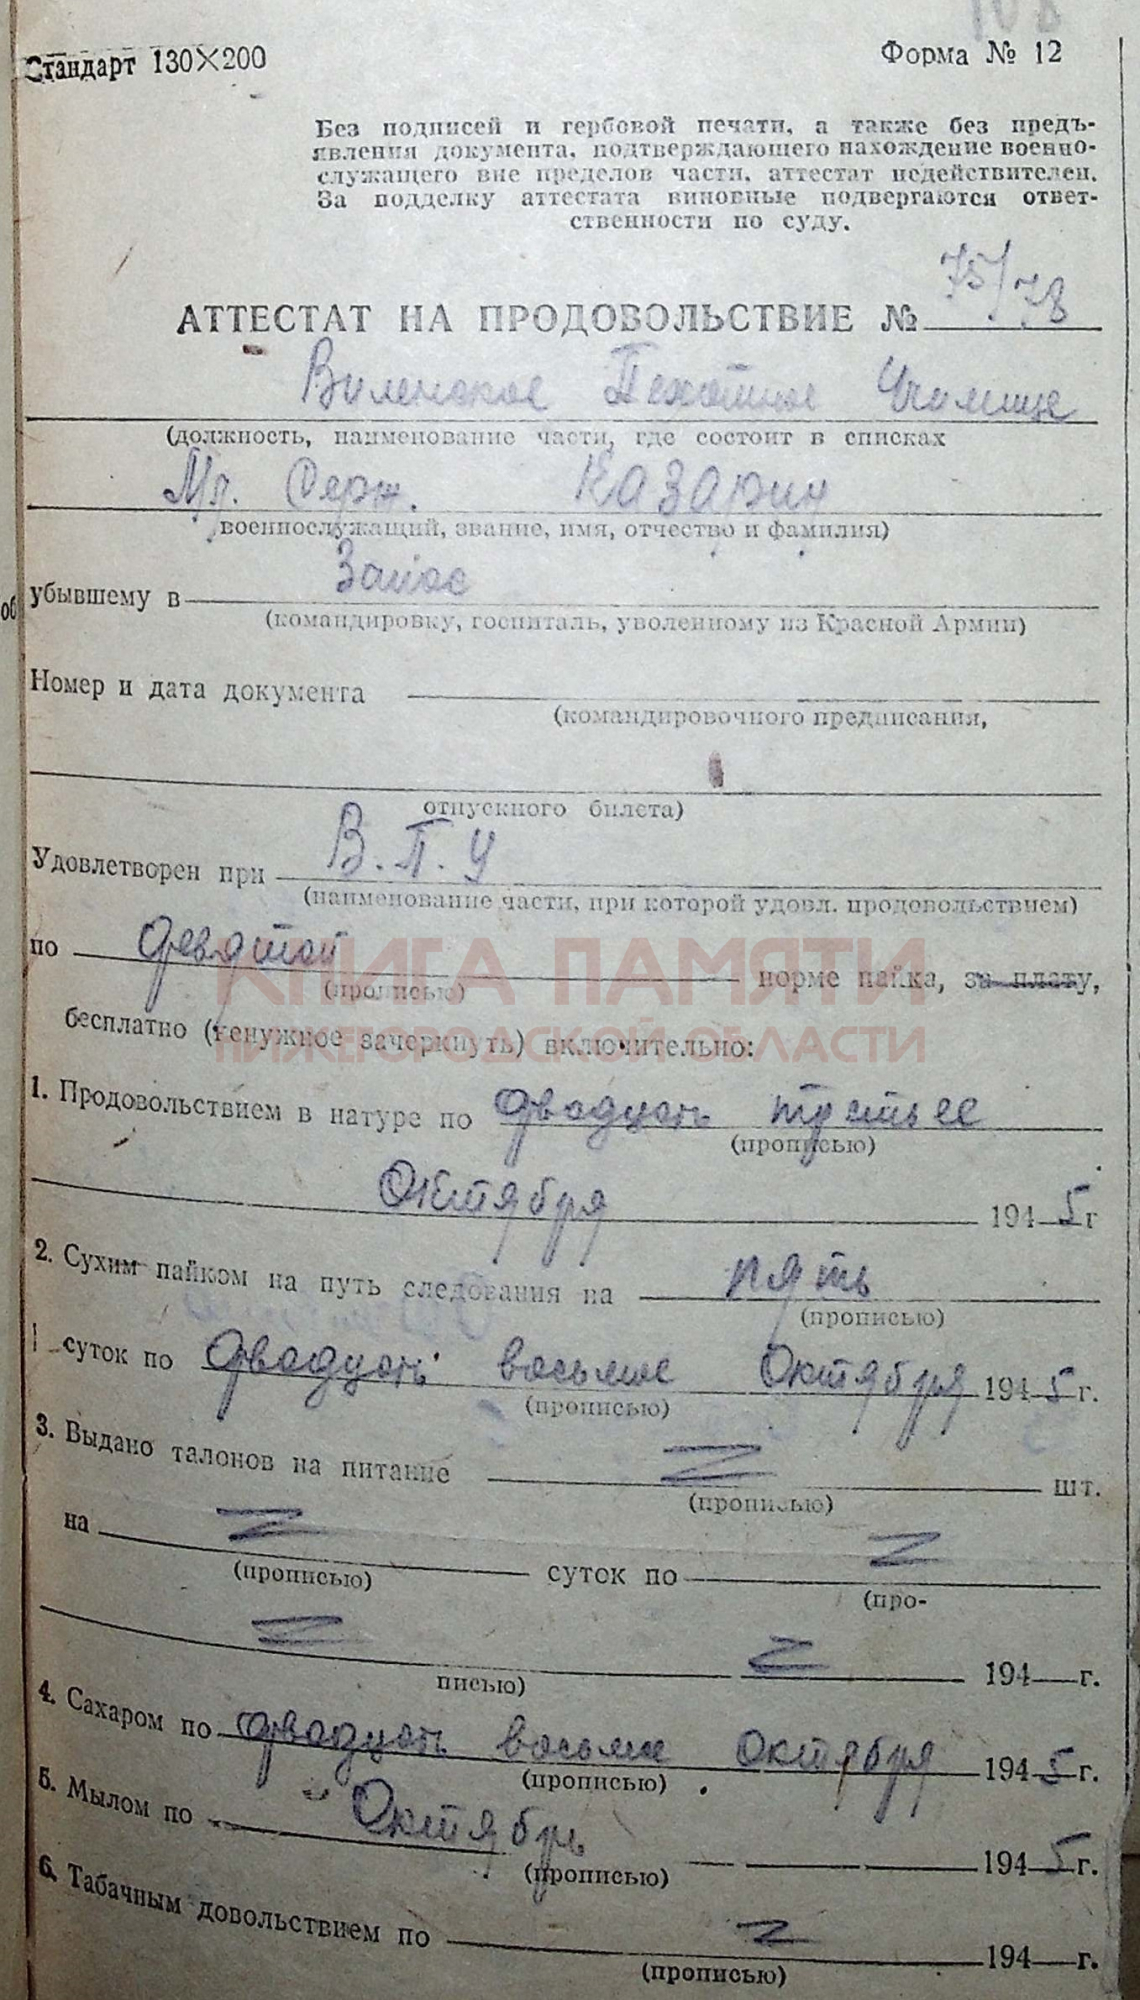 108
Стандарт 130×200
Форма № 12
Без подписей и гербовой печати, а также без предъ-
явления документа, подтверждающего нахождение военно-
служащего вне пределов части, аттестат недействителен.
За подделку аттестата виновные подвергаются ответ-
ственности по суду.
АТТЕСТАТ НА ПРОДОВОЛЬСТВИЕ № 75/78
Виленское Пехотное Училище
(должность, наименование части, где состоит в списках
Мл. Серж. Казарин
военнослужащий, звание, имя, отчество и фамилия)
об
убывшему в Запас
(командировку, госпиталь, уволенному из Красной Армии)
Номер и дата документа
(командировочного предписания,
отпускного билета)
Удовлетворен при В.П.У
(наименование части, при которой удовл. продовольствием)
по девятой норме пайка, за плату,
(прописью)
КНИГА ПАМЯТИ
бесплатно (ненужное зачеркнуть) включительно:
НИЖЕГОРОДСКОЙ ОБЛАСТИ
1. Продовольствием в натуре по двадцать третье
(прописью)
Октября 1945 г
2. Сухим пайком на путь следования на пять
(прописью)
суток по двадцать восьмое Октября 1945 г.
(прописью)
3. Выдано талонов на питание Z шт.
(прописью)
на Z суток по Z
(прописью) (про-
Z Z 194 г.
писью)
4. Сахаром по двадцать восьмое Октября 1945 г.
(прописью)
5. Мылом по Октябрь 1945 г.
(прописью)
6. Табачным довольствием по Z 194 г.
(прописью)